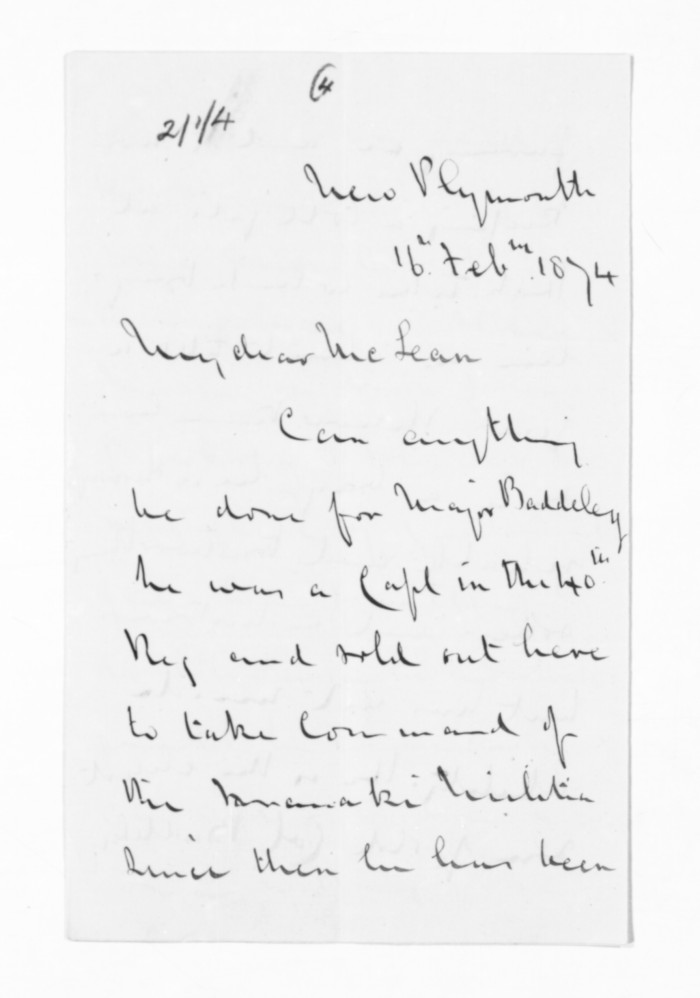 (4
2/1/4
New Plymouth
16th Feby. 1874
My dear McLean
Can anything
be done for Major Baddeley
he was a Capt in the 40th
Reg and sold out here
to take Command of
the Taranaki Militia
Since then he has been